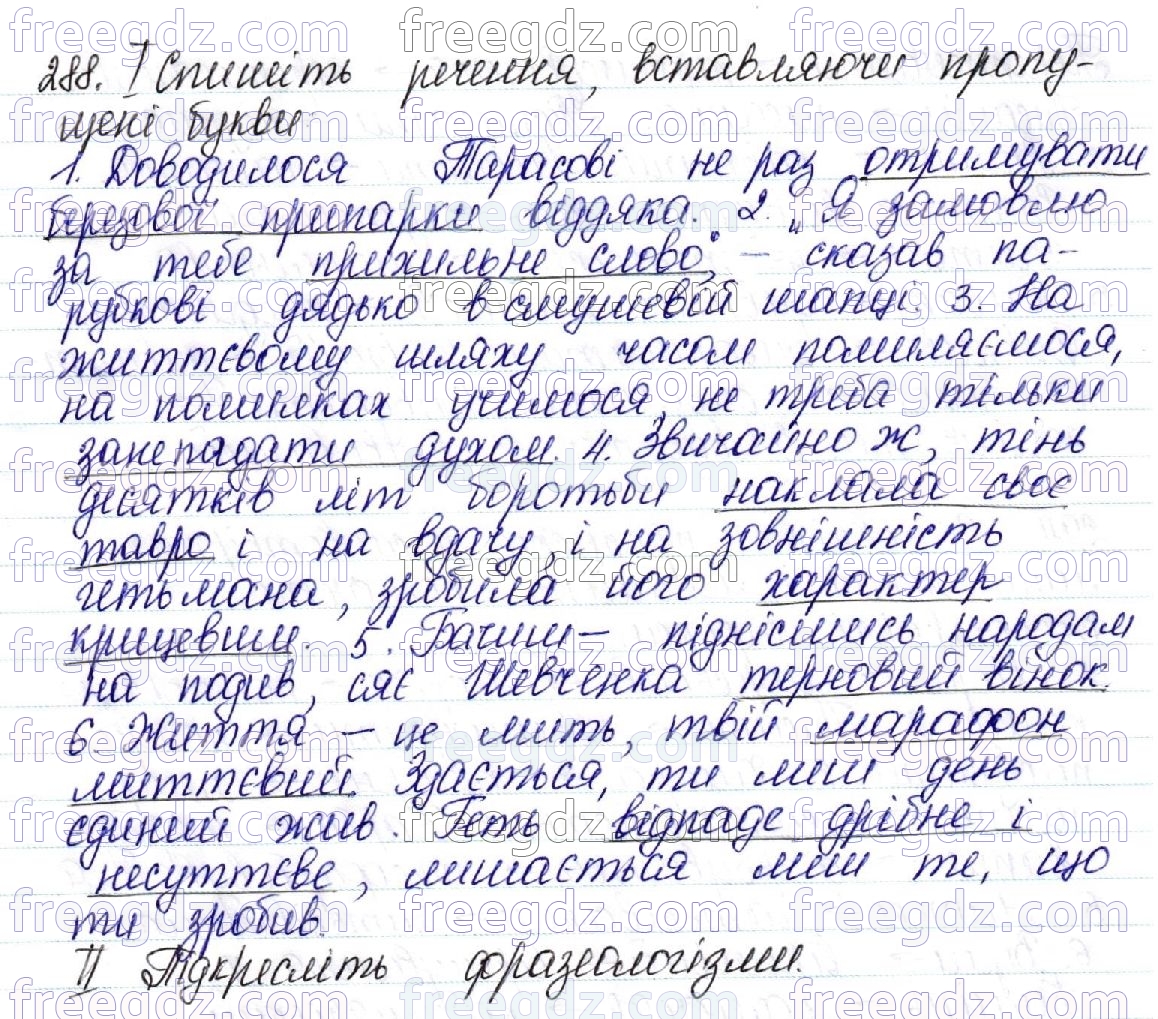 288. I Спишіть речення, вставляючи пропу-
щені букви
1. Доводилося Тарасові не раз отримувати
березової припарки від дяка. 2. „Я замовлю
за тебе прихильне слово", – сказав па-
рубкові дядько в смушевій шапці. 3. На
життєвому шляху часом помиляємося,
на помилках учимося, не треба тільки
занепадати духом. 4. Звичайно ж, тінь
десятків літ боротьби наклала своє
тавро і на вдачу, і на зовнішність
гетьмана, зробила його характер
крицевим. 5. Бачиш – піднісшись народам
на подив, сяє Шевченка терновий вінок.
6. Життя – це мить, твій марафон
миттєвий. Здається, ти лиш день
єдиний жив. Геть відпаде дрібне і
несуттєве, лишається лиш те, що
ти зробив.
II Підкресліть фразеологізми.
freegdz.com